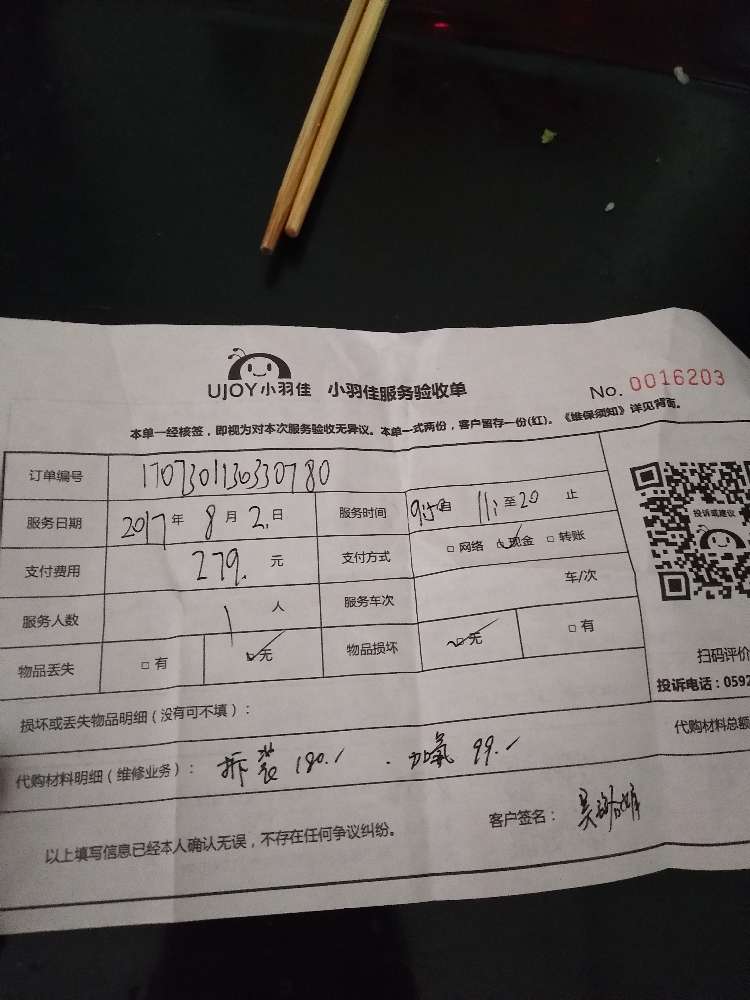 UJOY小羽佳 小羽佳服务验收单 No. 0016203
本单一经核签，即视为对本次服务验收无异议。本单一式两份，客户留存一份(红)。《维保须知》详见背面。
订单编号 1707301136330780
服务日期 2017年 8月 2日 服务时间 自 11: 至 20 止
支付费用 279. 元 支付方式 □网络 ☑现金 □转账
服务人数 1 人 服务车次 车/次
物品丢失 □有 ☑无 物品损坏 ☑无 □有
投诉或建议
扫码评价
投诉电话：0592
损坏或丢失物品明细（没有可不填）：
代购材料总额
代购材料明细（维修业务）： 拆装 180. 加氧 99.
以上填写信息已经本人确认无误，不存在任何争议纠纷。 客户签名： 吴